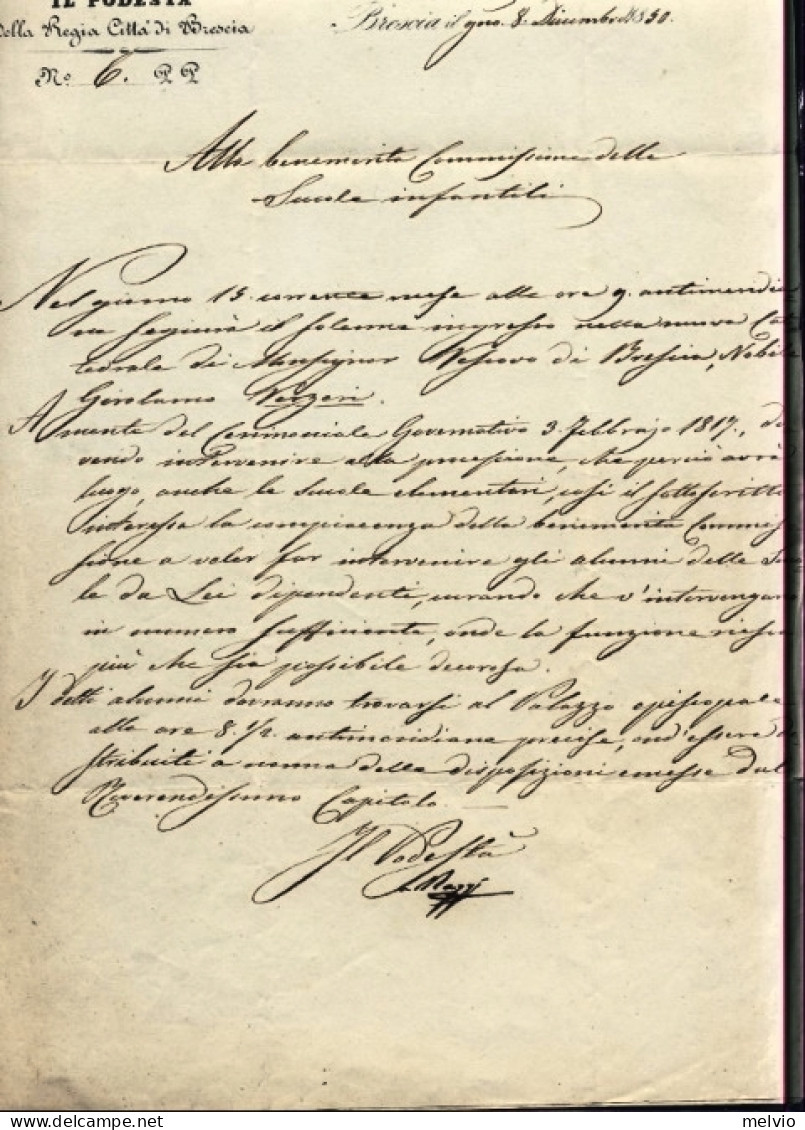 IL PODESTÀ
della Regia Città di Brescia
Nº 6. P P
Brescia il gno. 8. Dicembre 1850.
Alla benemerita Commissione delle
Scuole infantili
Nel giorno 15 corrente mese alle ore 9. antimeridia
ne seguirà il solenne ingresso nella nuova Cat
tedrale di Monsignor Vescovo di Brescia, Nobile
Girolamo Verzeri.
A mente del Cerimoniale Governativo 3. Febbrajo 1817., do
vendo intervenire alla processione, che perciò avrà
luogo, anche le scuole elementari, così il sottoscritto
interessa la compiacenza della benemerita Commis
sione a voler far intervenire gli alunni delle Scuo
le da Lei dipendenti, curando che v'intervengano
in numero sufficiente, onde la funzione riesca
più che sia possibile decorosa.
I detti alunni dovranno trovarsi al Palazzo episcopale
alle ore 8. 1/2. antimeridiane precise, ond'essere di
stribuiti a norma delle disposizioni emesse dal
Reverendissimo Capitolo.
Il Podestà
melvio